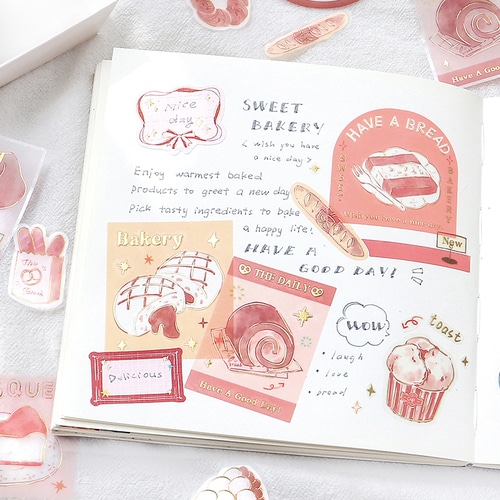 Nice
day
SWEET
BAKERY
< wish you have
a nice day >
Enjoy warmest baked
products to greet a new day
Pick tasty ingredients to bake
a happy life!
HAVE A
GOOD DAY!
HAVE A BREAD
BAKERY
Now
Bakery
THE DAILY
Have A Good Day!
Delicious
WOW
toast
• laugh
• love
• proud
Have A Good